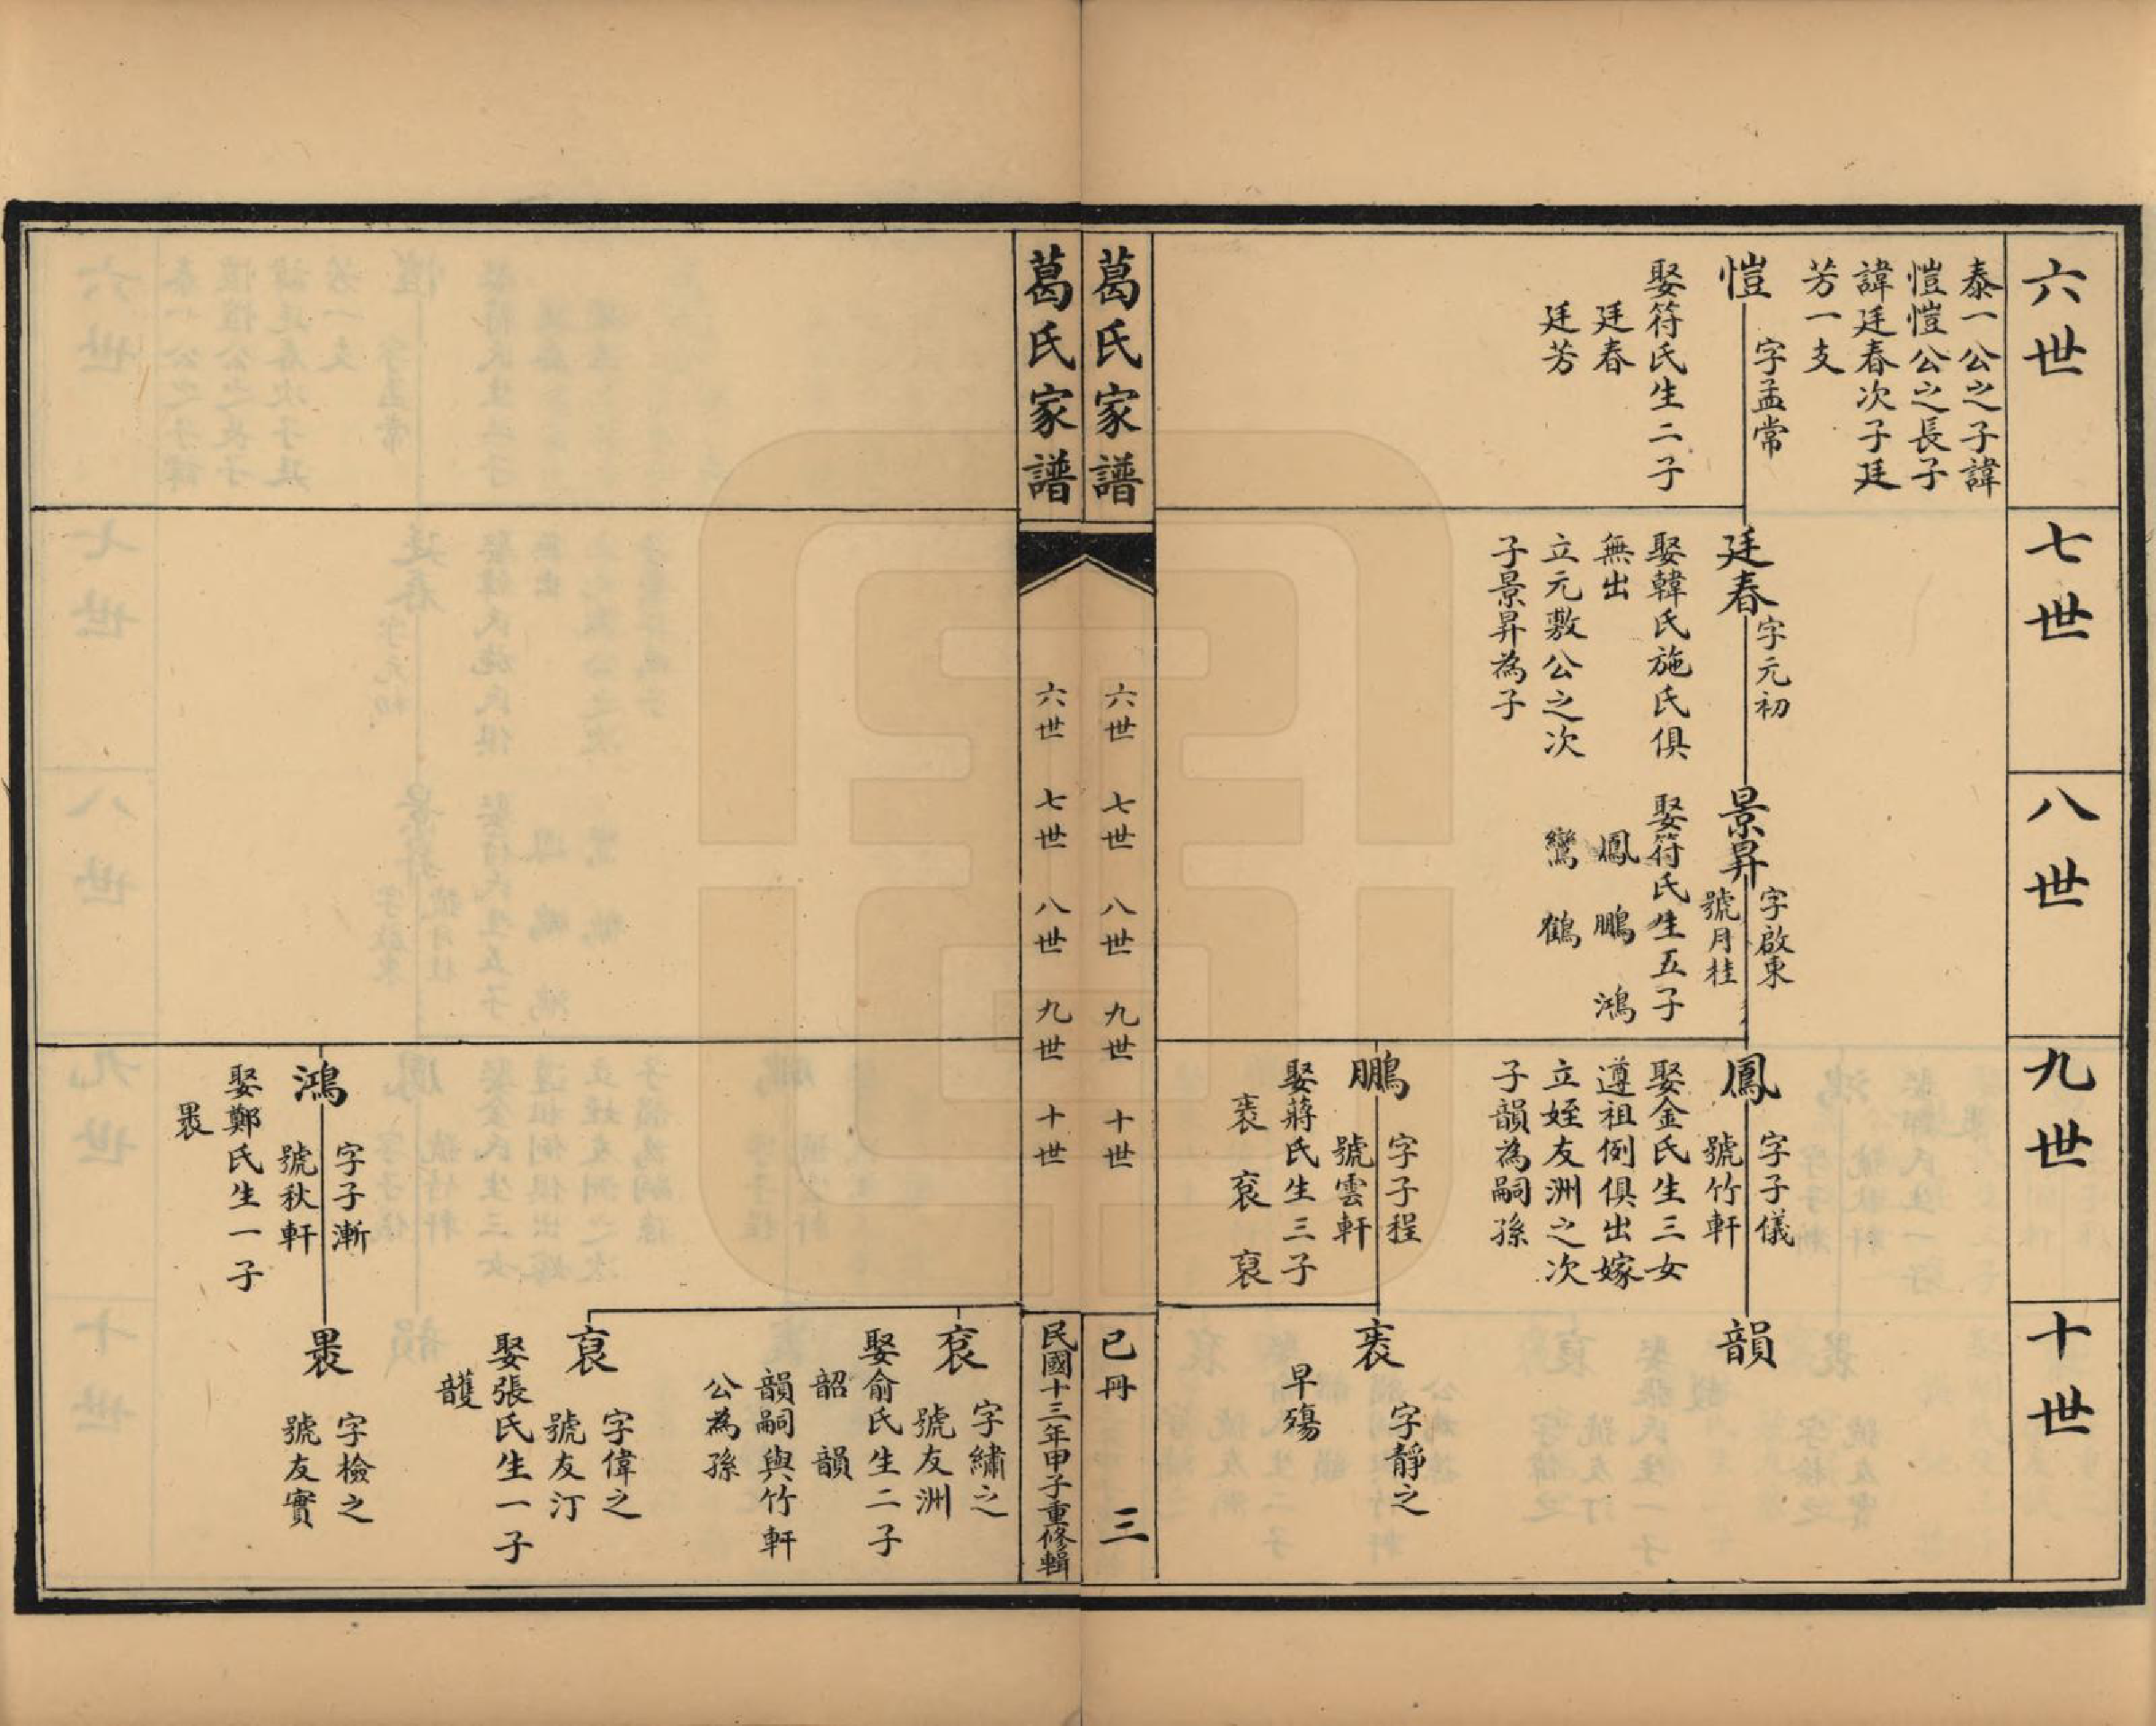 六世
泰一公之子諱
愷愷公之長子
諱廷春次子廷
芳一支
愷
字孟常
娶符氏生二子
廷春
廷芳
七世
廷春
字元初
娶韓氏施氏俱
無出
立元敷公之次
子景昇為子
八世
景昇
字啟東
號月桂
娶符氏生五子
鳳 鵬 鴻
鸞 鶴
九世
鳳
字子儀
號竹軒
娶金氏生三女
遵祖例俱出嫁
立姪友洲之次
子韻為嗣孫
鵬
字子程
號雲軒
娶蔣氏生三子
裘 袞 裒
十世
韻
裘
字靜之
早殤
葛氏家譜
六世 七世 八世 九世 十世
已冊 三
葛氏家譜
六世 七世 八世 九世 十世
民國十三年甲子重修輯
鴻
字子漸
號秋軒
娶鄭氏生一子
褁
袞
字繡之
號友洲
娶俞氏生二子
韶 韻
韻嗣與竹軒
公為孫
裒
字偉之
號友汀
娶張氏生一子
頀
褁
字檢之
號友實